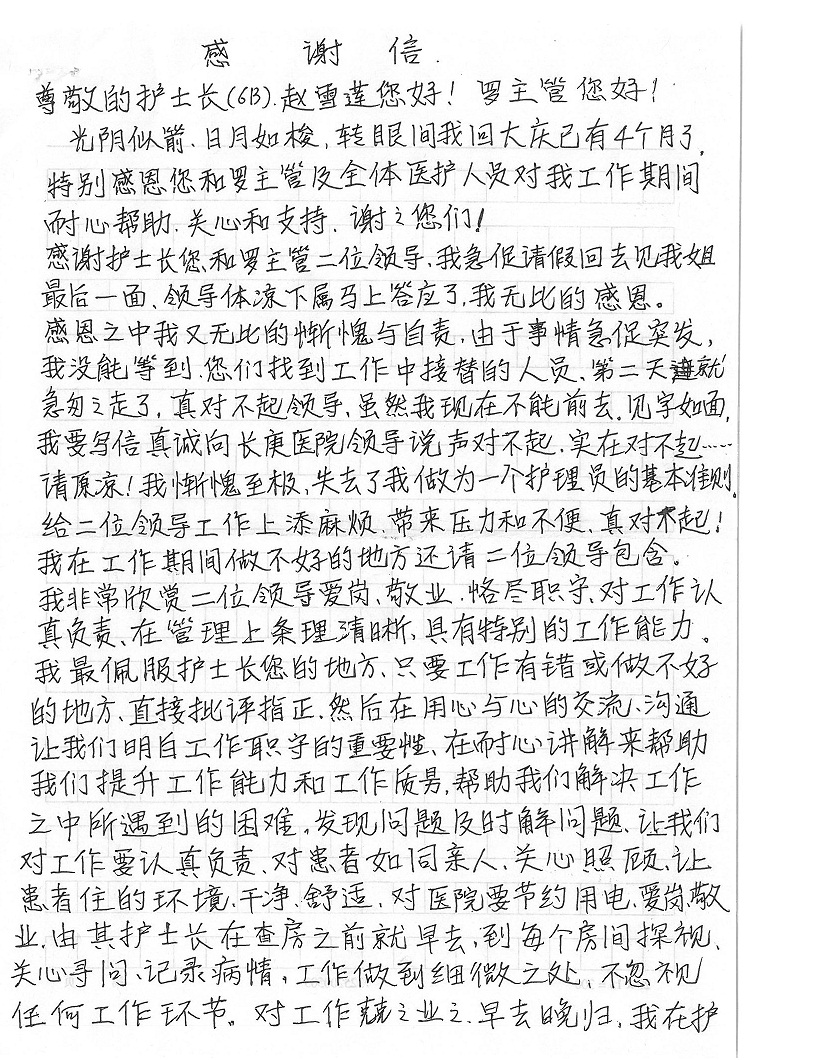 感 谢 信.
尊敬的护士长(6B).赵雪莲您好！罗主管您好！
光阴似箭、日月如梭，转眼间我回大庆已有4个月了。
特别感恩您和罗主管及全体医护人员对我工作期间
耐心帮助、关心和支持、谢之您们！
感谢护士长您和罗主管二位领导、我急促请假回去见我姐
最后一面、领导体凉下属马上答应了，我无比的感恩。
感恩之中我又无比的惭愧与自责，由于事情急促突发，
我没能等到、您们找到工作中接替的人员、第二天就
急匆之走了，真对不起领导，虽然我现在不能前去。见字如面，
我要写信真诚向长庚医院领导说声对不起，实在对不起……
请原凉！我惭愧至极、失去了我做为一个护理员的基本准则。
给二位领导工作上添麻烦、带来压力和不便、真对不起！
我在工作期间做不好的地方还请二位领导包含。
我非常欣赏二位领导爱岗、敬业、恪尽职守、对工作认
真负责、在管理上条理清晰、具有特别的工作能力。
我最佩服护士长您的地方、只要工作有错或做不好
的地方、直接批评指正、然后在用心与心的交流、沟通
让我们明白工作职守的重要性、在耐心讲解来帮助
我们提升工作能力和工作质易，帮助我们解决工作
之中所遇到的困难。发现问题及时解问题、让我们
对工作要认真负责、对患者如同亲人、关心照顾、让
患者住的环境、干净、舒适、对医院要节约用电、爱岗、敬
业、由其护士长在查房之前就早去，到每个房间探视、
关心寻问、记录病情。工作做到细微之处、不忽视
任何工作环节。对工作兢之业之、早去晚归，我在护